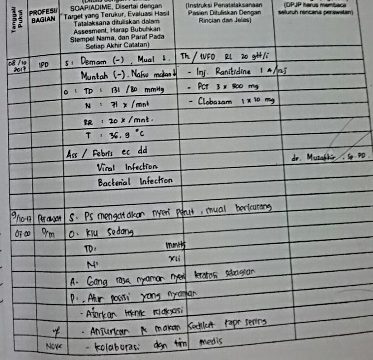 Tanggal/
Pukul
PROFESI/
BAGIAN
SOAP/ADIME, Disertai dengan
Target yang Terukur, Evaluasi Hasil
Tatalaksana dituliskan dalam
Assesment, Harap Bubuhkan
Stempel Nama, dan Paraf Pada
Setiap Akhir Catatan)
(Instruksi Penatalaksanaan
Pasien Dituliskan Dengan
Rincian dan Jelas)
(DPJP harus membaca
seluruh rencana perawatan)
08/10
2017
IPD
S : Demam (-), Mual ↓.
Muntah (-). Nafsu makan↓
O : TD : 131 /80 mmHg
N : 71 x /mnt
RR : 20 x /mnt.
T : 36.9 °C
Ass / Febris ec dd
Viral Infection
Bacterial Infection
Th / IVFD RL 20 gtt/i
- Inj. Ranitidine 1 A/
- PCT 3 x 500 mg
- Clobazam 1 x 10 mg
dr. Muzakkir, Sp.PD
9/10-17
07.00
Perawat
P/m
S. PS mengatakan nyeri perut, mual berkurang
O. KU Sedang
TD: mmHg
N: x/i
A. Gang rasa nyaman nyeri teratasi sebagian
P. Atur posisi yang nyaman
- Ajarkan teknik relaksasi
- Anjurkan makan sedikit tapi sering
- Kolaborasi dgn tim medis